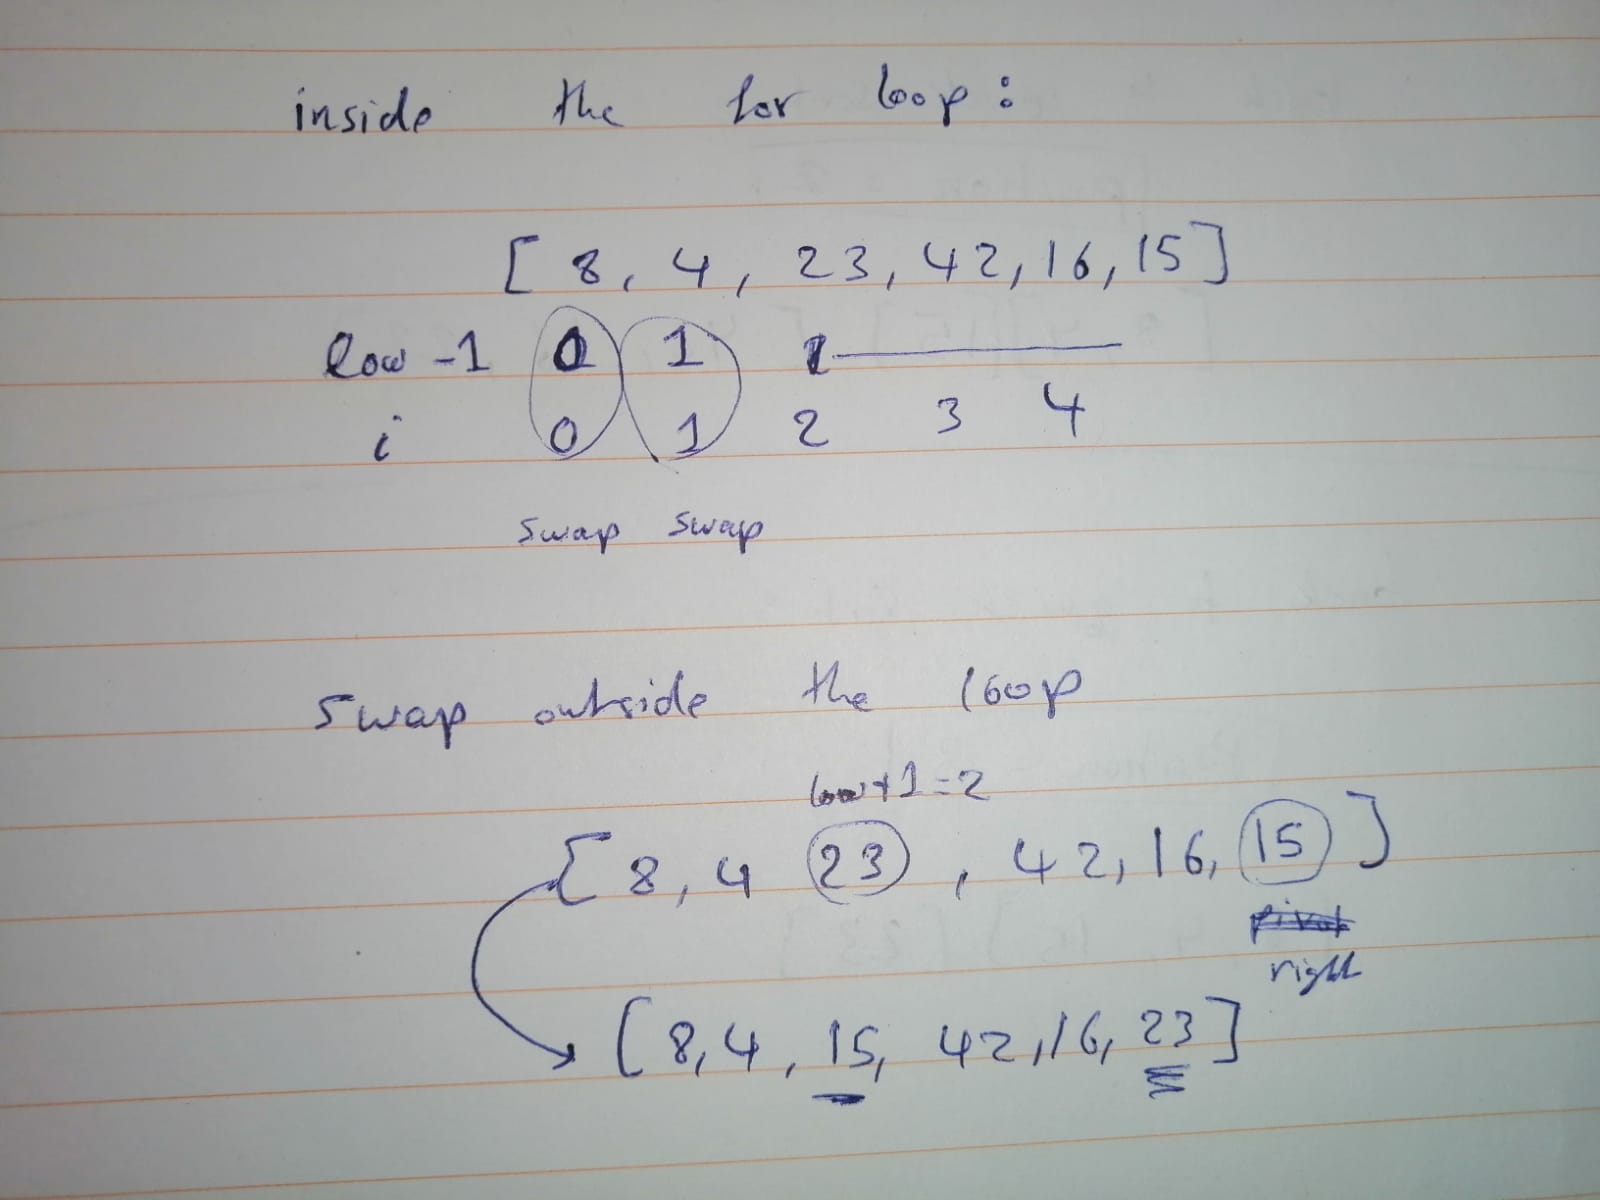 inside the for loop:
[ 8, 4, 23, 42, 16, 15]
low -1 0 1 1
i 0 1 2 3 4
swap swap
swap outside the loop
low+1=2
[ 8, 4 23 , 42, 16, 15 ]
pivot
right
[ 8, 4, 15, 42, 16, 23 ]